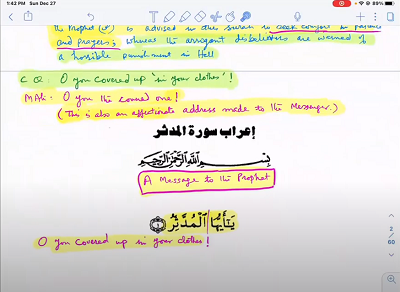 1:42 PM Sun Dec 27
89%
the Prophet (ﷺ) is advised in the surah to seek comfort in patience
and prayers; whereas the arrogant disbelievers are warned of
a horrible punishment in Hell
C Q: O you covered up in your clothes'!
MAli: O you the one!
(This is also an affectionate address made to the Messenger.)
إعراب سورة المدثر
بِسْمِ اللَّهِ الرَّحْمَٰنِ الرَّحِيمِ
A Message to the Prophet
يَٰٓأَيُّهَا ٱلْمُدَّثِّرُ ١
2
/
60
O you covered up in your clothes!